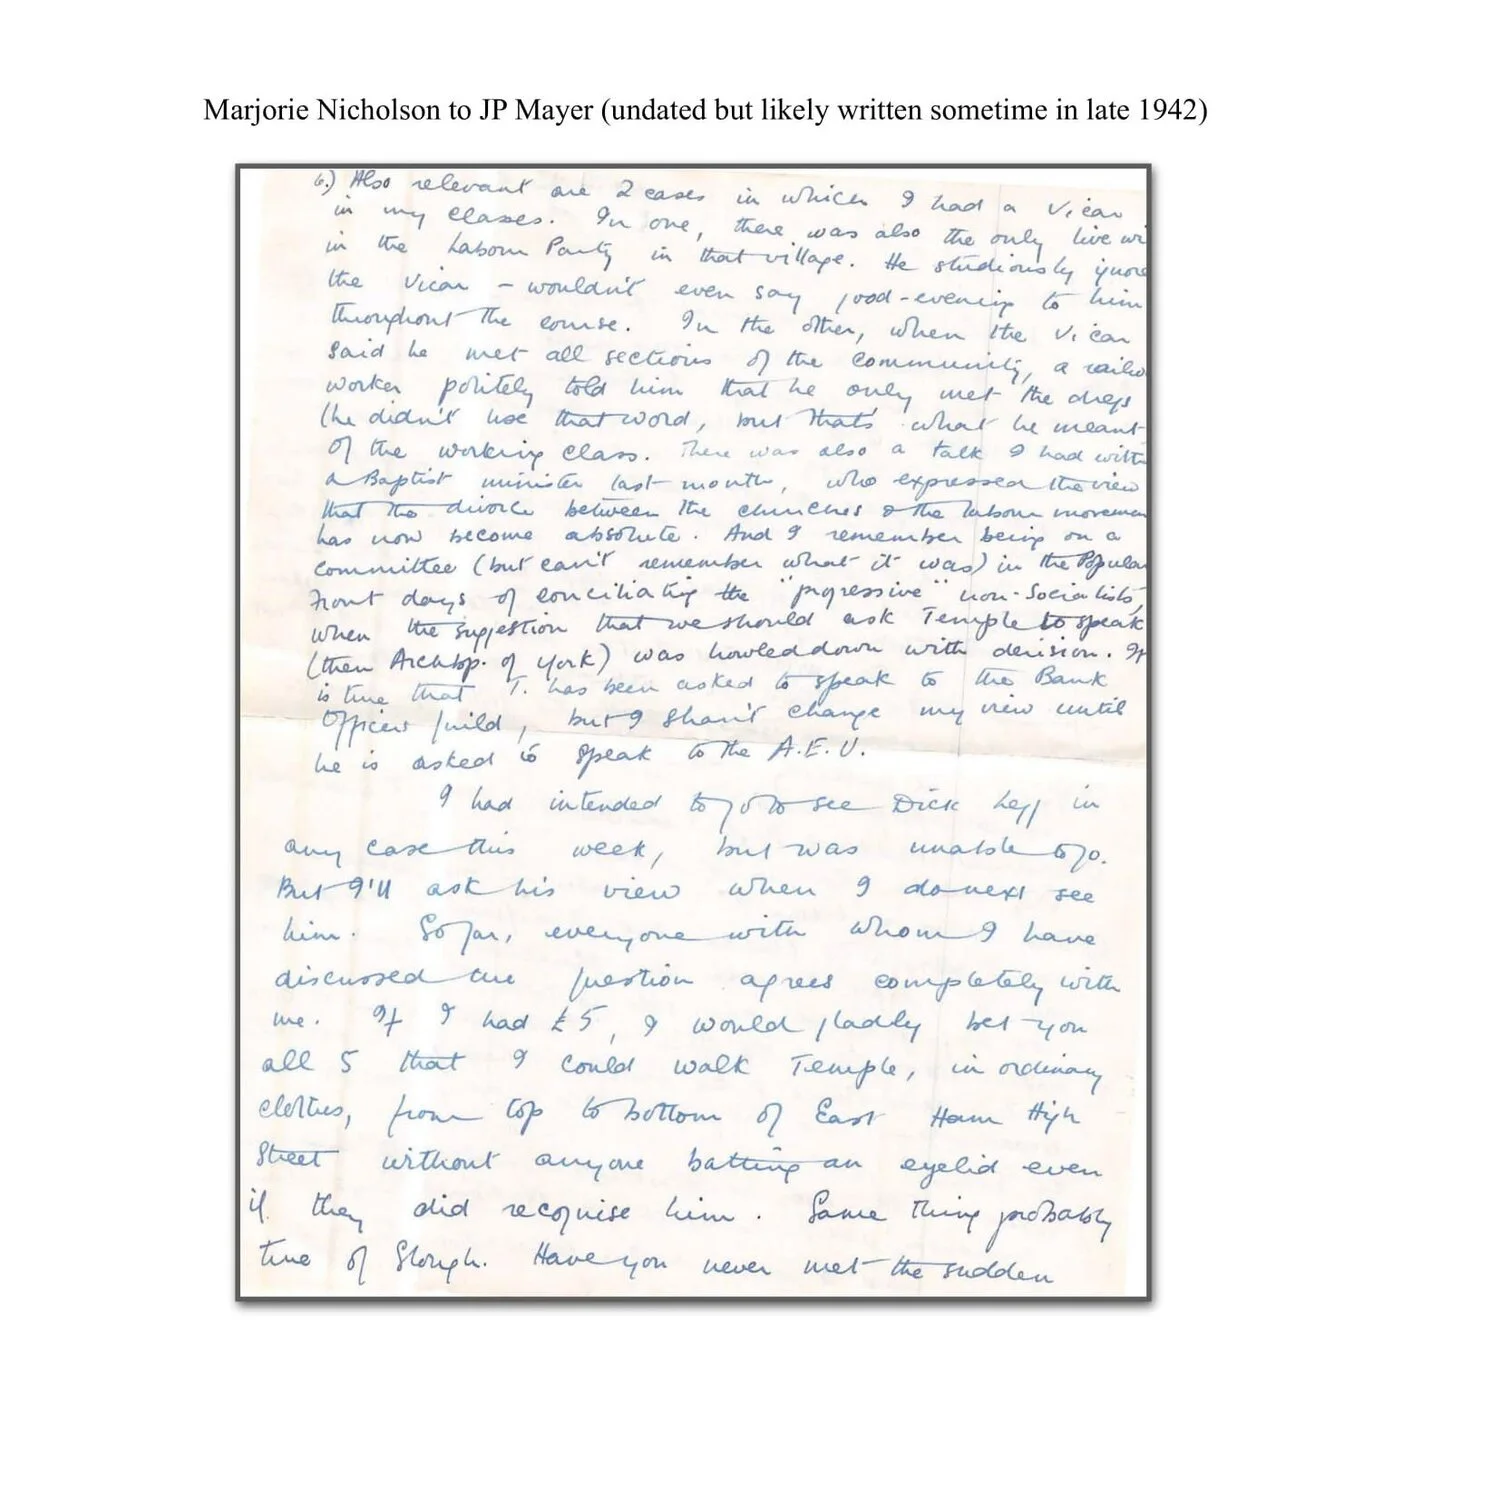 Marjorie Nicholson to JP Mayer (undated but likely written sometime in late 1942)
6.) Also relevant are 2 cases in which I had a Vicar
in my classes. In one, there was also the only live wi
in the Labour Party in that village. He studiously ignore
the Vicar – wouldn't even say good-evening to him
throughout the course. In the other, when the Vicar
said he met all sections of the community, a railw
worker politely told him that he only met the dregs
(he didn't use that word, but that's what he meant
of the working class. There was also a talk I had with
a Baptist minister last month, who expressed the view
that the divorce between the churches & the labour movemen
has now become absolute. And I remember being on a
committee (but can't remember what it was) in the Popular
Front days of conciliating the "progressive" non-Socialists,
when the suggestion that we should ask Temple to speak
(then Archbp. of York) was howled down with derision. It
is true that T. has been asked to speak to the Bank
Officers Guild, but I shan't change my view until
he is asked to speak to the A.E.U.
I had intended to go to see Dick Legg in
any case this week, but was unable to go.
But I'll ask his view when I do next see
him. So far, everyone with whom I have
discussed the question agrees completely with
me. If I had £5, I would gladly bet you
all 5 that I could walk Temple, in ordinary
clothes, from top to bottom of East Ham High
Street without anyone batting an eyelid even
if they did recognise him. Same thing probably
true of Slough. Have you never met the sudden